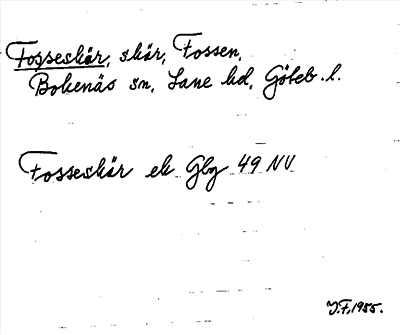 Fosseskär, skär, Fossen,
Bokenäs sn, Lane hd, Göteb. l.
Fosseskär ek Gbg 49 NV
J.F. 1955.